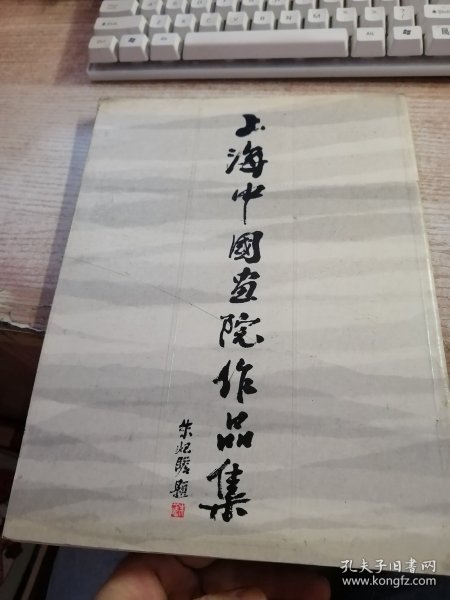 上海中國画院作品集
朱屺瞻題
孔夫子旧书网
www.kongfz.com